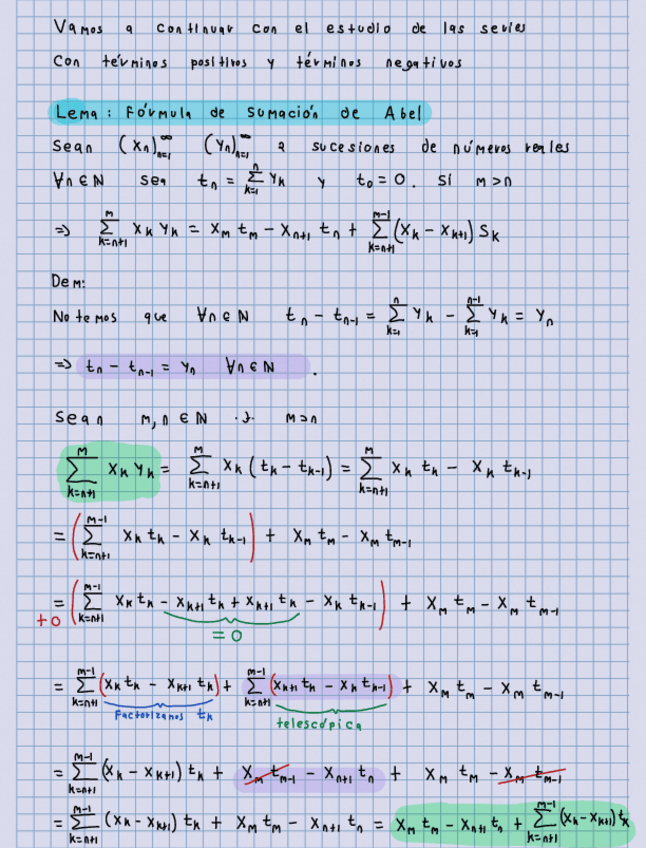 Vamos a continuar con el estudio de las series
Con términos positivos y términos negativos
Lema: Fórmula de Sumación de Abel
Sean (xₙ)ₙ₌₁^∞ (yₙ)ₙ₌₁^∞ 2 sucesiones de números reales
∀n∈ℕ sea tₙ = ∑_{k=1}^{n} yₖ y t₀ = 0. Si m>n
⇒ ∑_{k=n+1}^{m} xₖ yₖ = xₘ tₘ − xₙ₊₁ tₙ + ∑_{k=n+1}^{m-1} (xₖ − xₖ₊₁) Sₖ
Dem:
Notemos que ∀n∈ℕ tₙ − tₙ₋₁ = ∑_{k=1}^{n} yₖ − ∑_{k=1}^{n-1} yₖ = yₙ
⇒ tₙ − tₙ₋₁ = yₙ ∀n∈ℕ.
Sean m,n ∈ ℕ .t. m>n
∑_{k=n+1}^{m} xₖ yₖ = ∑_{k=n+1}^{m} xₖ (tₖ − tₖ₋₁) = ∑_{k=n+1}^{m} xₖ tₖ − xₖ tₖ₋₁
= (∑_{k=n+1}^{m-1} xₖ tₖ − xₖ tₖ₋₁) + xₘ tₘ − xₘ tₘ₋₁
= (∑_{k=n+1}^{m-1} xₖ tₖ − xₖ₊₁ tₖ + xₖ₊₁ tₖ − xₖ tₖ₋₁) + xₘ tₘ − xₘ tₘ₋₁
+0 = 0
= ∑_{k=n+1}^{m-1} (xₖ tₖ − xₖ₊₁ tₖ) + ∑_{k=n+1}^{m-1} (xₖ₊₁ tₖ − xₖ tₖ₋₁) + xₘ tₘ − xₘ tₘ₋₁
Factorizamos tₖ telescópica
= ∑_{k=n+1}^{m-1} (xₖ − xₖ₊₁) tₖ + xₘ tₘ₋₁ − xₙ₊₁ tₙ + xₘ tₘ − xₘ tₘ₋₁
= ∑_{k=n+1}^{m-1} (xₖ − xₖ₊₁) tₖ + xₘ tₘ − xₙ₊₁ tₙ = xₘ tₘ − xₙ₊₁ tₙ + ∑_{k=n+1}^{m-1} (xₖ − xₖ₊₁) tₖ